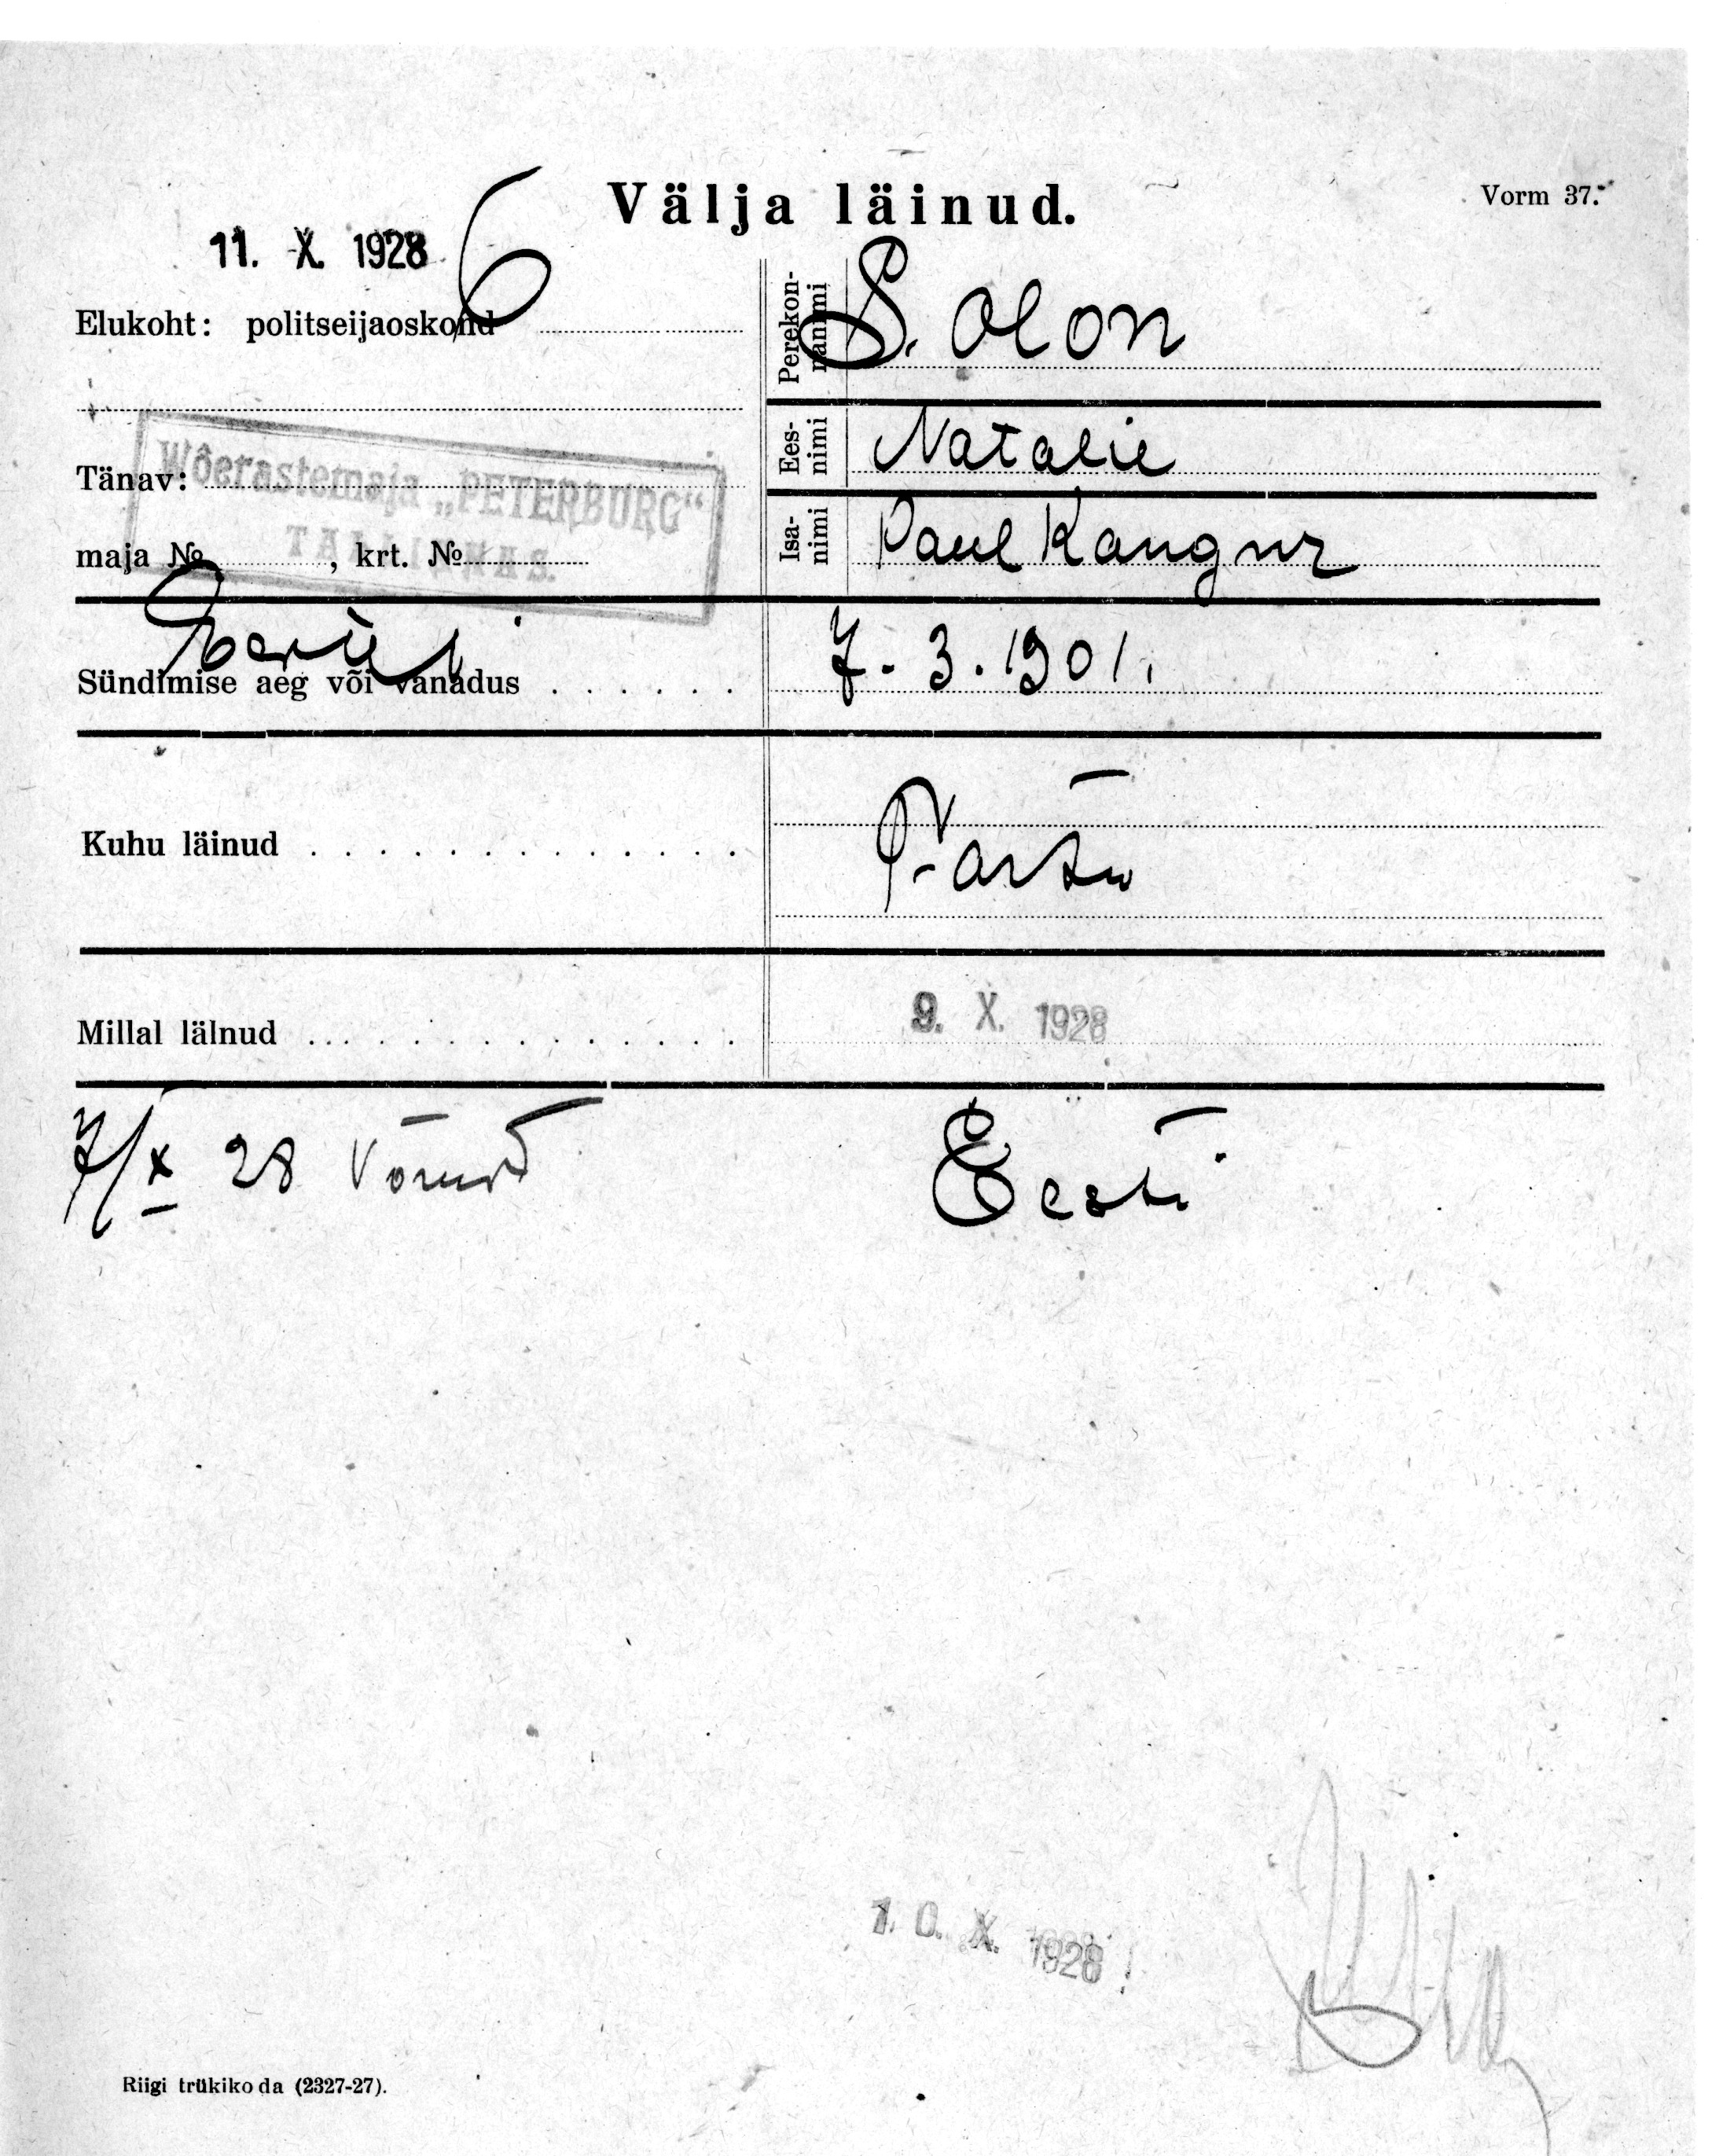 Välja läinud.
Vorm 37.
11. X. 1928
6
Elukoht: politseijaoskond
Perekonnanimi
Solon
Wõerastemaja „PETERBURG“
TALLINNAS.
Tänav:
maja № , krt. №
Eesnimi
Natalie
Isanimi
Paul Kangur
Sündimise aeg või vanadus
7.3.1901.
Kuhu läinud
Tartu
Millal läinud
9. X. 1928
7/X 28 Võrust
Eesti
10. X. 1928
Riigi trükikoda (2327-27).